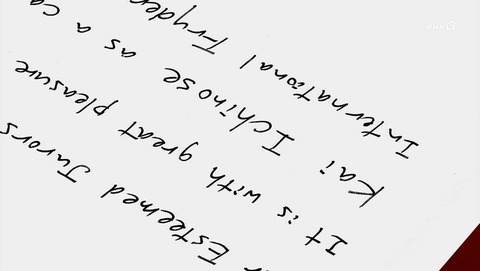 r Esteemed Jurors
It is with great pleasure
Kai Ichinose as a ca
International Fryder
NHK G